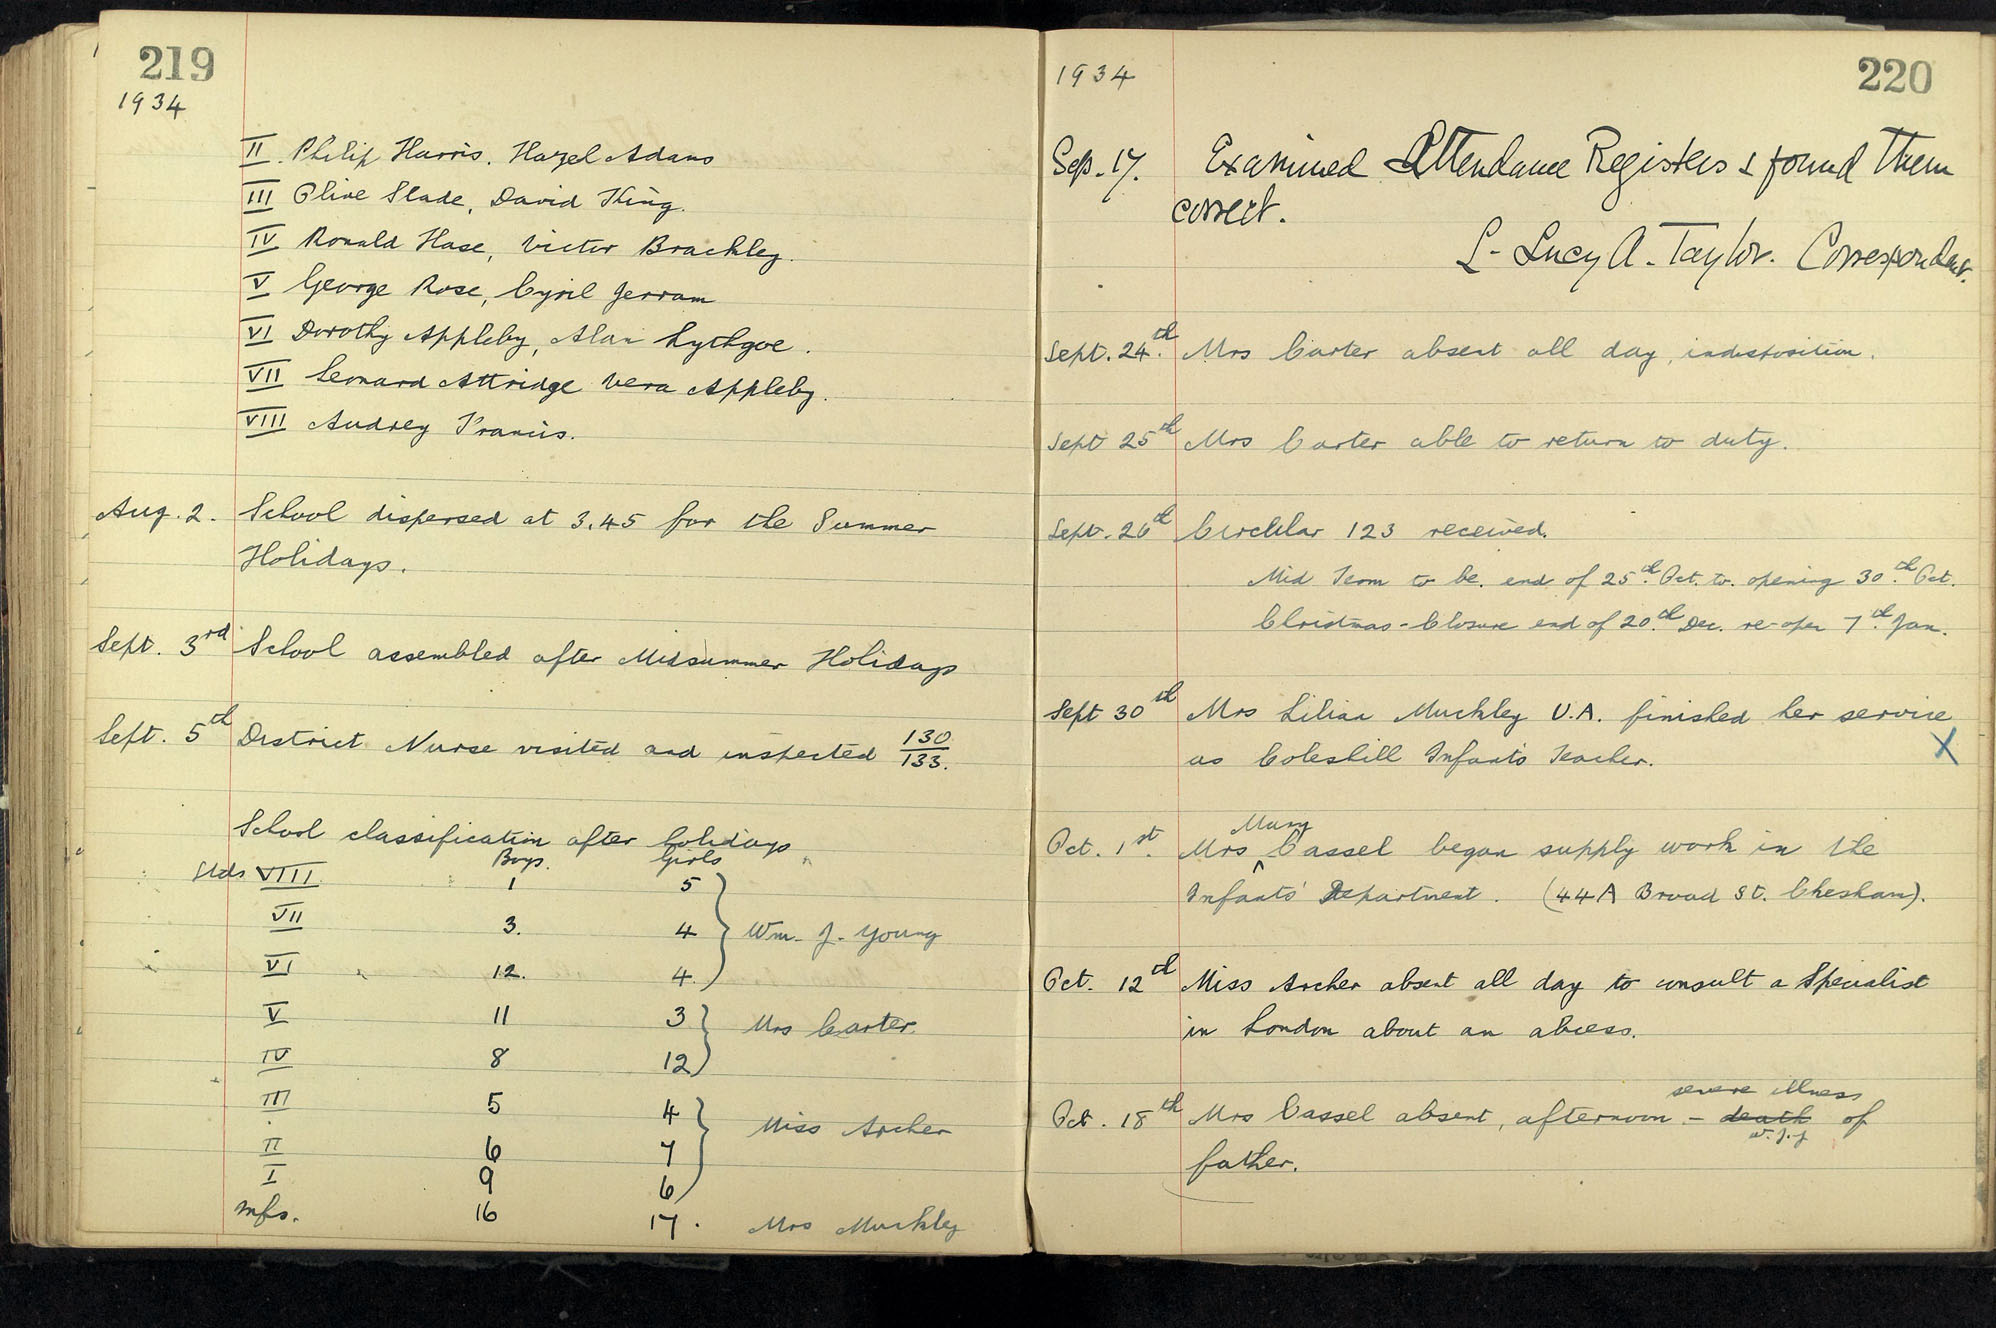 219
1934
II. Philip Harris. Hazel Adams
III Olive Slade, David King.
IV Ronald Hase, Victor Brackley.
V George Rose, Cyril Jerram
VI Dorothy Appleby, Alan Lythgoe.
VII Leonard Attridge Vera Appleby.
VIII Audrey Francis.
Aug. 2. School dispersed at 3.45 for the Summer
Holidays.
Sept. 3rd School assembled after Midsummer Holidays
Sept. 5th District Nurse visited and inspected 130/133.
School classification after holidays
Boys. Girls
Stds VIII 1 5
VII 3. 4 Wm. J. Young
VI 12. 4.
V 11 3 Mrs Carter.
IV 8 12
III 5 4
Miss Archer
II 6 7
I 9 6
Infs. 16 17. Mrs Muckley
1934
220
Sep. 17. Examined Attendance Registers & found them
correct.
L- Lucy A. Taylor. Correspondent.
Sept. 24th. Mrs Carter absent all day, indisposition.
Sept 25th Mrs Carter able to return to duty.
Sept. 26th Circular 123 received.
Mid Term to be. end of 25th. Oct. to. opening 30th. Oct.
Christmas - Closure end of 20th. Dec. re-open 7th. Jan.
Sept 30th Mrs Lilian Muckley U.A. finished her service
as Coleshill Infants Teacher. X
Mary
Oct. 1st. Mrs ^ Cassel began supply work in the
Infants' Department. (44A Broad St. Chesham).
Oct. 12th Miss Archer absent all day to consult a Specialist
in London about an abcess.
severe illness
Oct. 18th Mrs Cassel absent, afternoon - death of
W.J.Y
father.